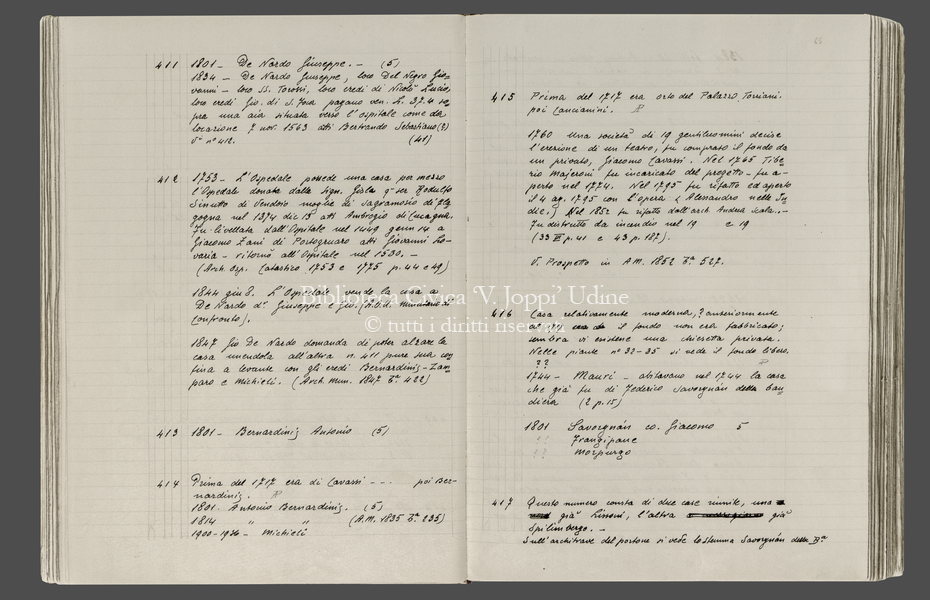 411 1801 - De Nardo Giuseppe. - (5)
1834 - De Nardo Giuseppe, loco Del Negro Gio-
vanni - loco SS. Torossi, loco eredi di Nicolò Lucio,
loco eredi Gio. di S. Foca pagano ven. L. 37.4 so,
pra una aia situata verso l'ospitale come da
locazione 7 nov. 1563 atti Bertrando Sebastiano (?)
V. n° 412. (41)
412 1753 - L'Ospedale possede una casa per mezzo
l'Ospedale donata dalla Sign.
Sinutto di Vendoio moglie di Sagramosio di
gogna nel 1374 dic 15 atti Ambrogio di Cucagna.
Fu livellata dall'Ospitale nel 1449 genn 14 a
Giacomo Zani di Portogruaro atti Giovanni Lo-
varia - ritornò all'Ospitale nel 1530. -
(Arch. Osp. Catastico 1753 e 1775 p. 44 e 49)
1844 giu 8. L'Ospedale vende la casa a
De Nardo d. Giuseppe e Gio.
Confronto).
1847 Gio De Nardo domanda di poter alzare la
casa unendola all'altra n. 411 pure sua con
fina a levante con gli eredi Bernardinis - Zam
paro e Michieli. (Arch. Mun. 1847 Ba 422)
413 1801 - Bernardinis Antonio (5)
414 Prima del 1717 era di Cavassi - - - poi Ber-
nardinis.
1801. Antonio Bernardinis. (5)
1814 " " (A.M. 1835 Ba 235)
1900-1936 - Michieli
66
415 Prima del 1717 era orto del Palazzo Torriani.
poi Cancianini.
1760 una società di 19 gentiluomini decise
l'erezione di un teatro, fu comprato il fondo da
un privato, Giacomo Cavassi. Nel 1765 Tibe
rio Majeroni fu incaricato del progetto - fu a-
perto nel 1774. Nel 1795 fu rifatto ed aperto
il 4 ag. 1795 con l'opera "Alessandro nelle In
die". Nel 1852 fu rifatto dall'arch. Andrea Scala. -
Fu distrutto da incendio nel 19 e 19
(33 III p. 41 e 43 p. 187).
V. Prospetto in A.M. 1852 Ba 527.
416 Casa relativamente moderna, ? anteriormente
il fondo non era fabbricato;
sembra vi esistene una chiesetta privata.
Nelle piante n° 32-35 si vede il fondo libero.
??
1744 - Mauri - abitavano nel 1744 la casa
che già fu di Federico Savorgnan della ban
diera (2 p. 15)
1801 Savorgnan co. Giacomo 5
?? Frangipane
?? Morpurgo
417 Questo numero consta di due case riunite, una
già Lissoni, l'altra già
Spilimbergo. -
Sull'architrave del portone si vede lo stemma Savorgnan della Ba
Biblioteca Civica 'V. Joppi' Udine
© tutti i diritti riservati